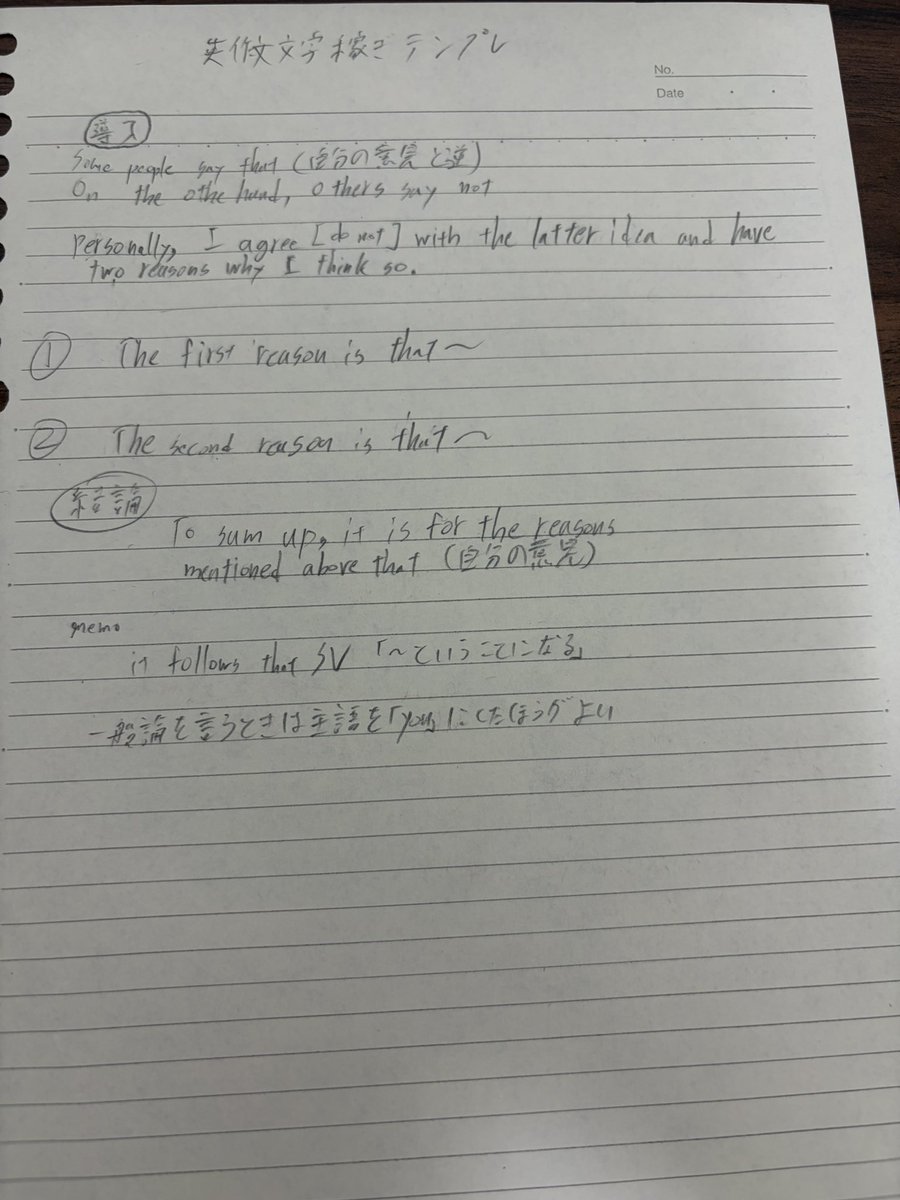 英作文文字稼ぎテンプレ
No.
Date
導入
Some people say that (自分の意見と逆)
On the othe hand, others say not
Personally, I agree [do not] with the latter idea and have
two reasons why I think so.
① The first reason is that～
② The second reason is that～
結論
To sum up, it is for the reasons
mentioned above that (自分の意見)
memo
it follows that SV 「～ということになる」
一般論を言うときは主語を「you」にしたほうがよい